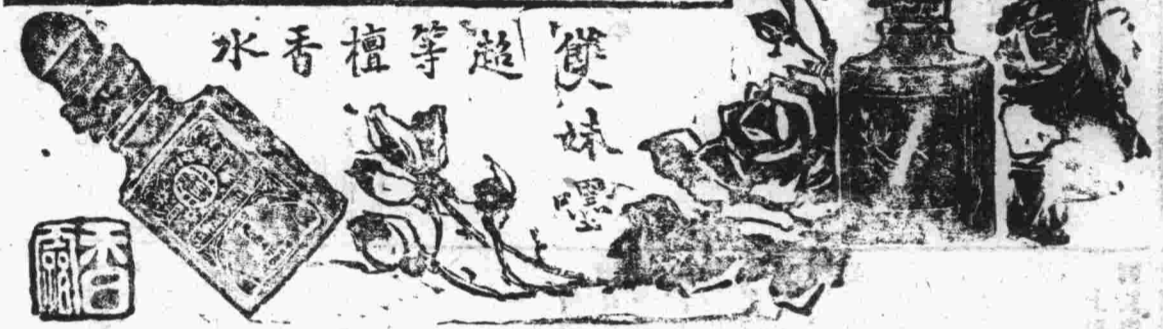 雙妹嚜
超等檀香水